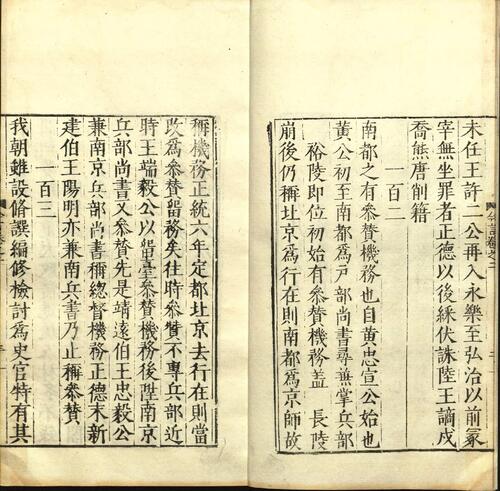 未任王許二公再入永樂至弘治以前冢
宰無坐罪者正德以後綵伏誅陸王謫戍
喬熊唐削籍
一百二
南都之有叅贊機務也自黃忠宣公始也
黃公初至南都爲戶部尚書尋兼掌兵部
裕陵即位初始有叅贊機務蓋 長陵
崩後仍稱北京爲行在則南都爲京師故
稱機務正統六年定都北京去行在則當
改爲叅賛留務矣往時叅賛不專兵部近
時王端毅公以留臺叅賛機務後陞南京
兵部尚書又叅賛先是靖遠伯王忠毅公
兼南京兵部尚書稱總督機務正德末新
建伯王陽明亦兼南兵書乃止稱叅賛
一百三
我朝雖設脩撰編修檢討爲史官特有其